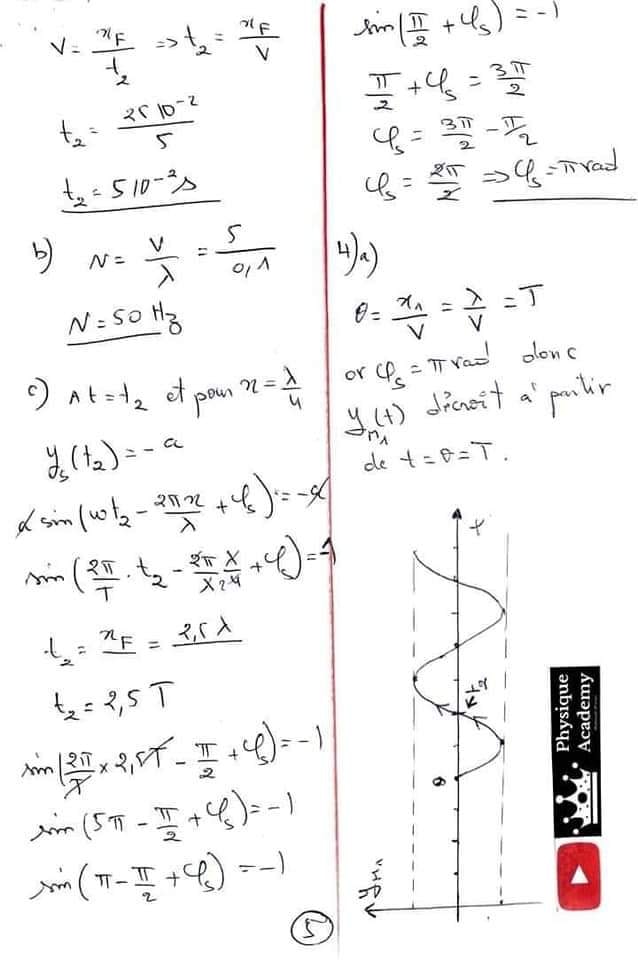 V = x_F / t_2 => t_2 = x_F / V
t_2 = 25 10^-2 / 5
t_2 = 5 10^-2 s
b) N = V / λ = 5 / 0,1
N = 50 Hz
c) At = t_2 et pour x = λ/4
y_s(t_2) = - a
a sin(ωt_2 - 2πx/λ + φ_s) = - a
sin(2π/T . t_2 - 2π/λ λ/4 + φ_s) = -1
t_2 = x_F = 2,5 λ
t_2 = 2,5 T
sin(2π/T × 2,5T - π/2 + φ_s) = -1
sin(5π - π/2 + φ_s) = -1
sin(π - π/2 + φ_s) = -1
sin(π/2 + φ_s) = -1
π/2 + φ_s = 3π/2
φ_s = 3π/2 - π/2
φ_s = 2π/2 => φ_s = π rad
4)a)
θ = x_1 / V = λ / V = T
or φ_s = π rad donc
y_M1(t) décroît à partir
de t = θ = T.
t
t_2
θ
Physique
Academy
5